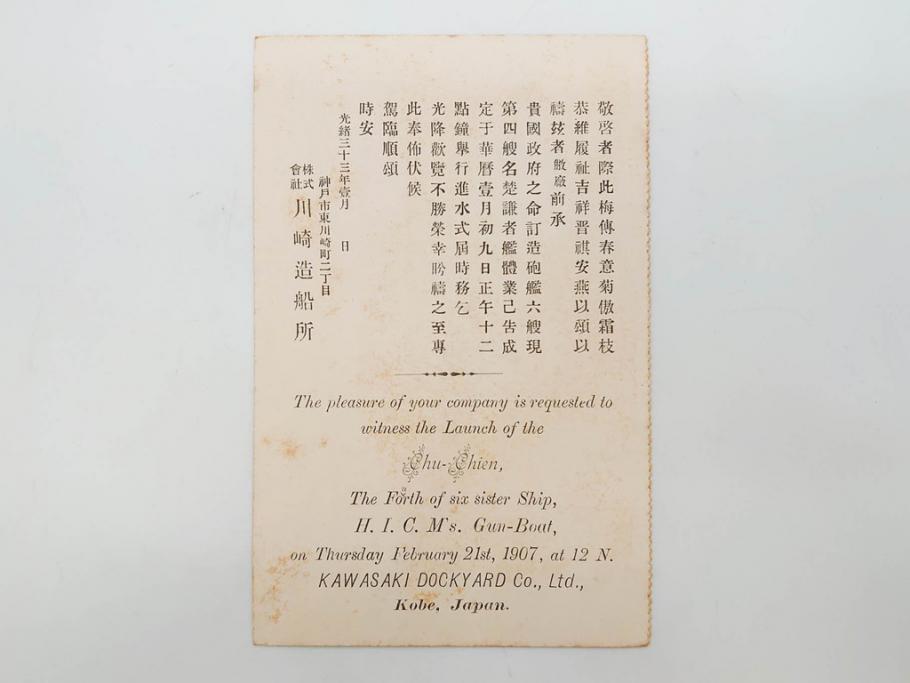 敬啓者際此梅傳春意菊傲霜枝
恭維履祉吉祥晋祺安燕以頌以
禱玆者敝廠前承
貴國政府之命訂造砲艦六艘現
第四艘名楚謙者艦體業已告成
定于華曆壹月初九日正午十二
點鐘舉行進水式屆時務乞
光降歡覽不勝榮幸盼禱之至專
此奉佈伏候
駕臨順頌
時安
光緒三十三年壹月 日
神戸市東川崎町二丁目
株式會社 川崎造船所
The pleasure of your company is requested to
witness the Launch of the
Chu-Chien,
The Forth of six sister Ship,
H. I. C. M's. Gun-Boat,
on Thursday February 21st, 1907, at 12 N.
KAWASAKI DOCKYARD Co., Ltd.,
Kobe, Japan.